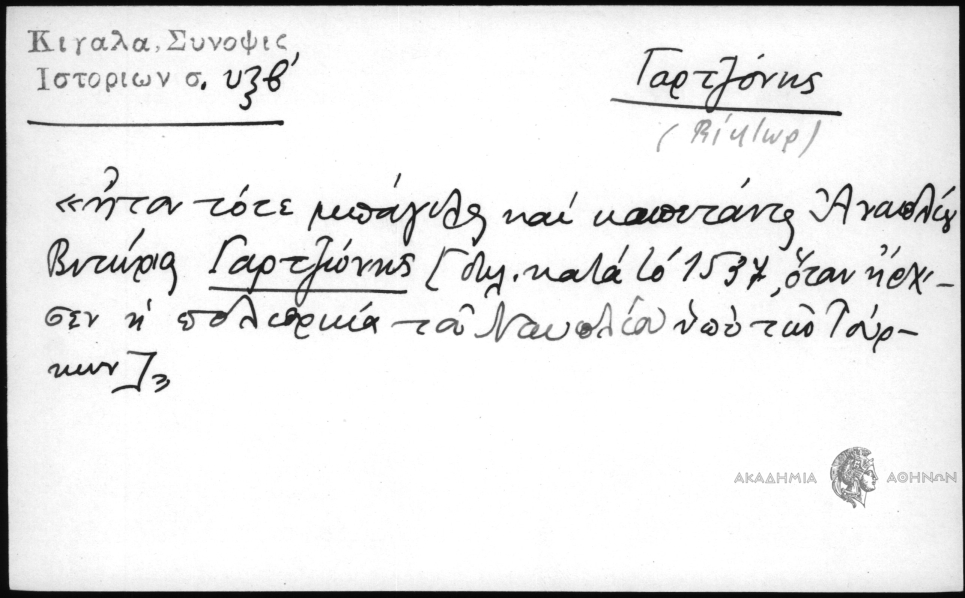 Κιγαλα, Συνοψις
Ιστοριων σ. υξβ'
Γαρτζώνης
(Βίκτωρ)
«ἦταν τότε μπάγιλος καὶ καπετάνος Ἀναπλίου
Βιτώριος Γαρτζώνης [δηλ. κατὰ τὸ 1537, ὅταν ἤρχι-
σεν ἡ πολιορκία τοῦ Ναυπλίου ὑπὸ τῶν Τούρ-
κων]»
ΑΚΑΔΗΜΙΑ ΑΘΗΝΩΝ